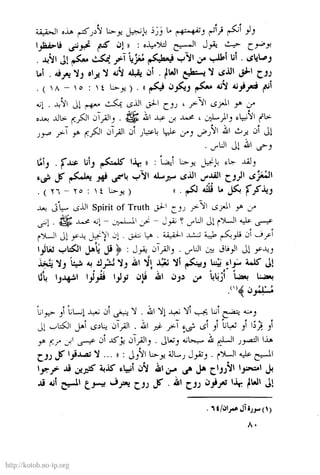 ولو أنكم قرأتم وتفهمتم ما وَرَدَ بإنجيل يوحنا لأدركتم هذه الحقيقة
بوضوح حيث يقول المسيح لتلاميذه : « إن كنتم تحبونني فاحفظوا
وصاياى . وأنا أطلب من الآب فيعطيكم مُعَزِّيا آخر ليمكث معكم إلى الأبد .
روح الحق الذى لا يستطيع العالم أن يقبله لأنه لا يراه ولا يعرفه . أما
أنتم فتعرفونه لأنه معكم ويكون فيكم » . ( يوحنا ١٤ : ١٥ - ١٨ )
من هو المعزى الآخر ، روح الحق الذى يمكث معكم إلى الأبد . إنه
خاتم الأنبياء ، والمرسلين ، محمد بن عبد الله ﷺ . والقرآن كلام الله خالد
إلى أن يرث الله الأرض ومن عليها باعتبار أن القرآن الكريم هو آخر صور
وحى الله إلى الناس .
ولقد جاء بإنجيل يوحنا أيضاً : « بهذا كلمتكم وأنا عندكم . وأمّا
المُعَزِّى الروح القدس الذى سيرسله الآب باسمى فهو يعلمكم كل شىء
ويذكركم بكل ما قُلْتُه لكم » . ( يوحنا ١٤ : ٢٥ - ٢٦ )
من هو المعزى الآخر روح الحق Spirit of Truth الذى سيأتى بعد
عيسى عليه السلام إلى الناس ؟ نقول - نحن المسلمين - إنه محمد ﷺ . إننى
أعرف أن قلوبكم طيبة تنشد الحقيقة . هذا يتفق . إن الإسلام يدعو إلى السلام
ويدعو إلى الوفاق بين الناس . والقرآن يقول : ﴿ قُلْ يَأهْلَ الكِتَابِ تَعَالَوْا
إِلَى كَلِمَةٍ سَوَاءٍ بَيْنَنَا وبَيْنَكُم أَلَّا نَعْبُدَ إِلَّا الله ولا نُشْرِكَ بِهِ شيئاً ولا يَتَّخِذَ
بعضُنا بعضاً أرْبَاباً مِن دُونِ الله فإن تَولَّوا فقُولُوا اشهدوا بأنَّا
مُسْلِمُون ﴾(١).
ومنه يتضح أننا يجب ألّا نعبد إلّا الله . لا ينبغى أن نعبد إنساناً أو حيواناً
أو بقراً أو ثعباناً أو أى شىء آخر غير الله . القرآن ينادى أهل الكتاب إلى
هذا التصور السليم لله سبحانه وتعالى . والقرآن يؤكد أن عيسى ابن مريم هو
المسيح عليه السلام . وتقول رسالة يوحنا الأولى : « ... لا تصدقوا كل روح
بل امتحنوا الأرواح هل هى من الله لأن أنبياء كذبة كثيرين قد خرجوا
إلى العالم بهذا تعرفون روح الله . كل روح يعترف بيسوع المسيح أنه قد
(١) سورة آل عمران/٦٤ .
٨٠
http://kotob.no-ip.org